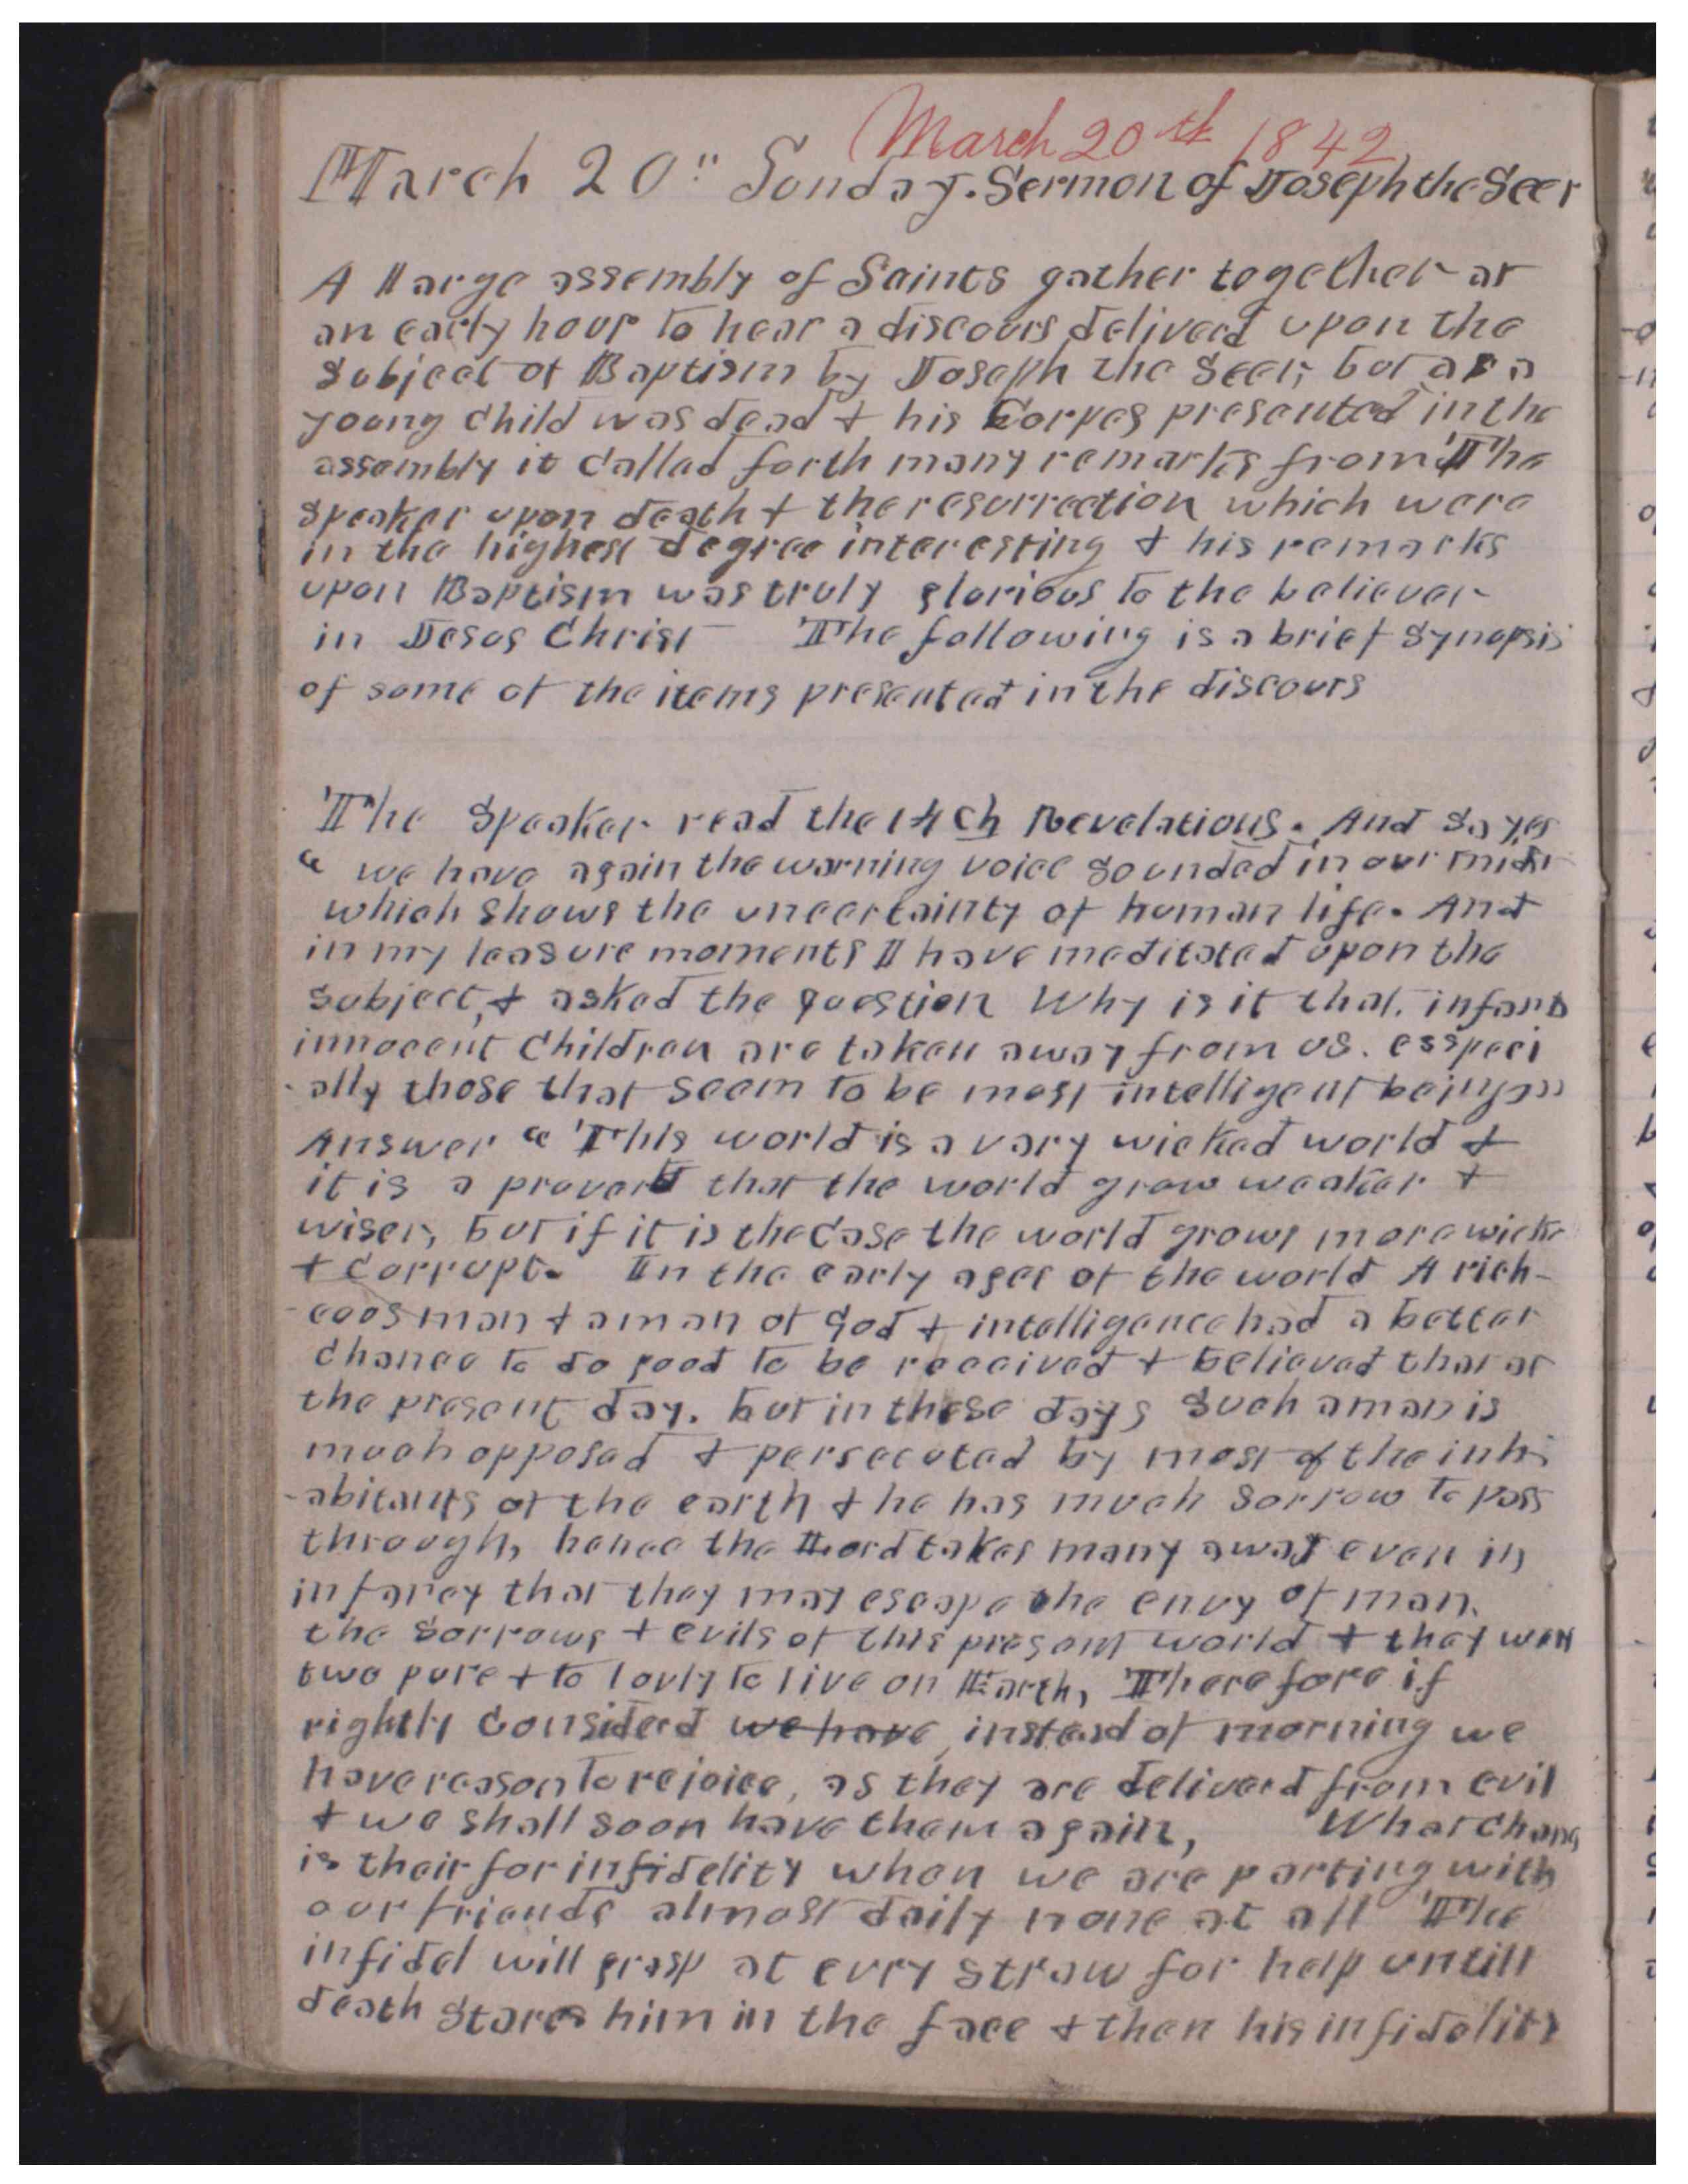 March 20th 1842
March 20" Sunday. Sermon of Joseph the Seer
A large assembly of Saints gather together at
an early hour to hear a discours deliverd upon the
subject of Baptism by Joseph the Seer, but as a
young child was dead & his Corpes presented in the
assembly it called forth many remarks from The
speaker upon death & the resurrection which were
in the highest degree interesting & his remarks
upon Baptism was truly glorious to the believer
in Jesus Christ The following is a brief synopsis
of some of the items presented in the discours
The speaker read the 14 ch Revelations. And sayes
" we have again the warning voice sounded in our midst
which shows the uncertainty of human life. And
in my leasure moments I have meditated upon the
subject, & asked the question Why is it that. infants
innocent children are taken away from us. esspeci
-ally those that seem to be most intelligent beings"
Answer " This world is a vary wicked world &
it is a proverb that the world grow weaker &
wiser, but if it is the case the world grows more wicked
& corrupt. In the early ages of the world A rich-
-eous man & a man of God & intelligence had a better
chance to do good to be received & believed than at
the present day. but in these days such a man is
much opposed & persecuted by most of the inh-
-abitants of the earth & he has much sorrow to pass
through, hence the Lord takes many away even in
infancy that they may escape the envy of man.
the sorrows & evils of this present world & they were
two pure & to lovly to live on Earth, Therefore if
rightly considerd we have, instead of morning we
have reason to rejoice, as they are deliverd from evil
& we shall soon have them again, What chanc
is their for infidelity when we are parting with
our friends almost daily none at all The
infidel will grasp at evry straw for help untill
death stares him in the face & then his infidelity